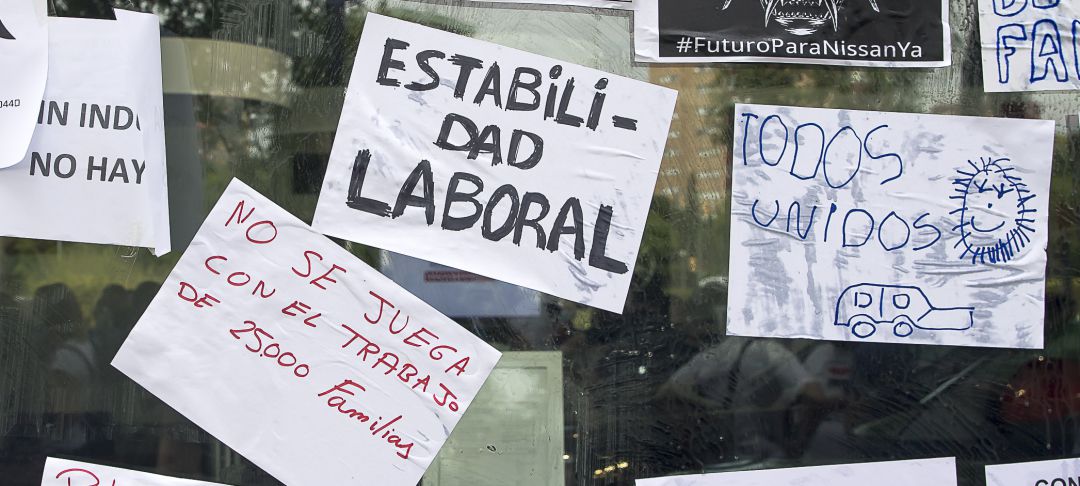 044D
NO HAY
ESTABILI-
DAD
LABORAL
#FuturoParaNissanYa
TODOS
UNIDOS
NO SE JUEGA
CON EL TRABAJO
DE 25.000 Familias